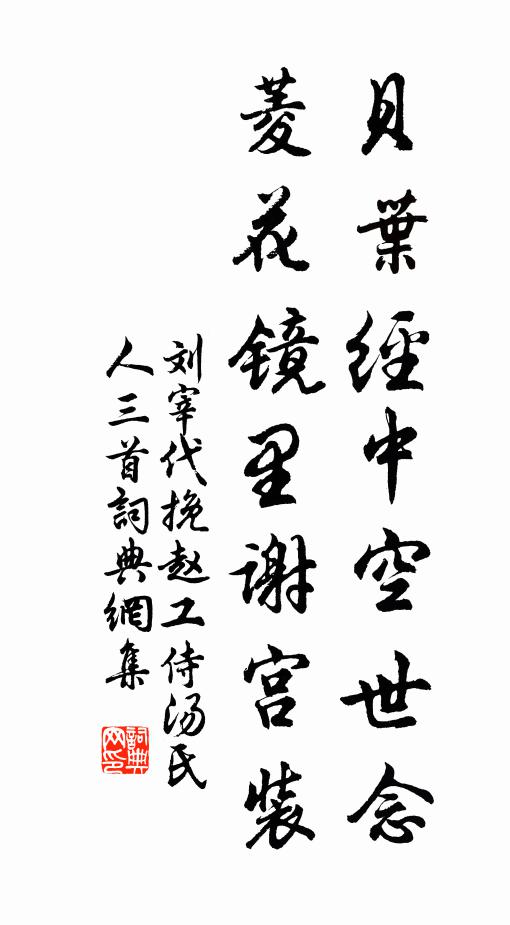 貝葉經中空世念
菱花镜里谢宫装
刘宰代挽赵工侍汤氏
人三首詞典網集
詞典网印